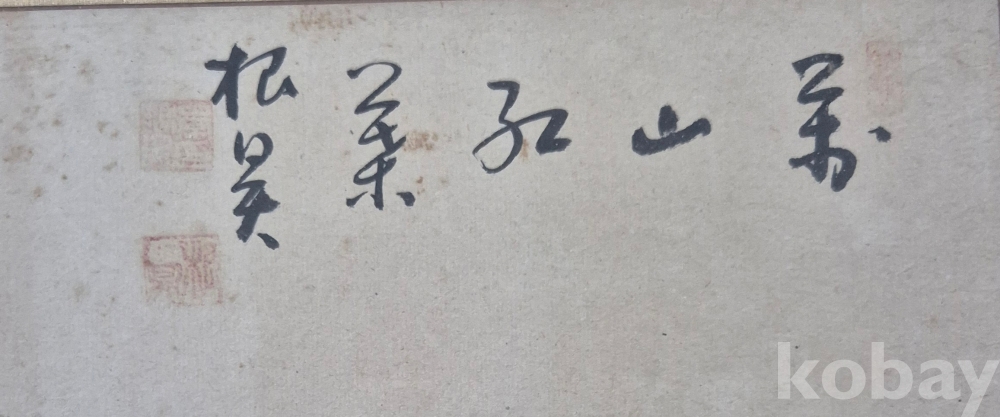 萬山紅葉
根昊
kobay